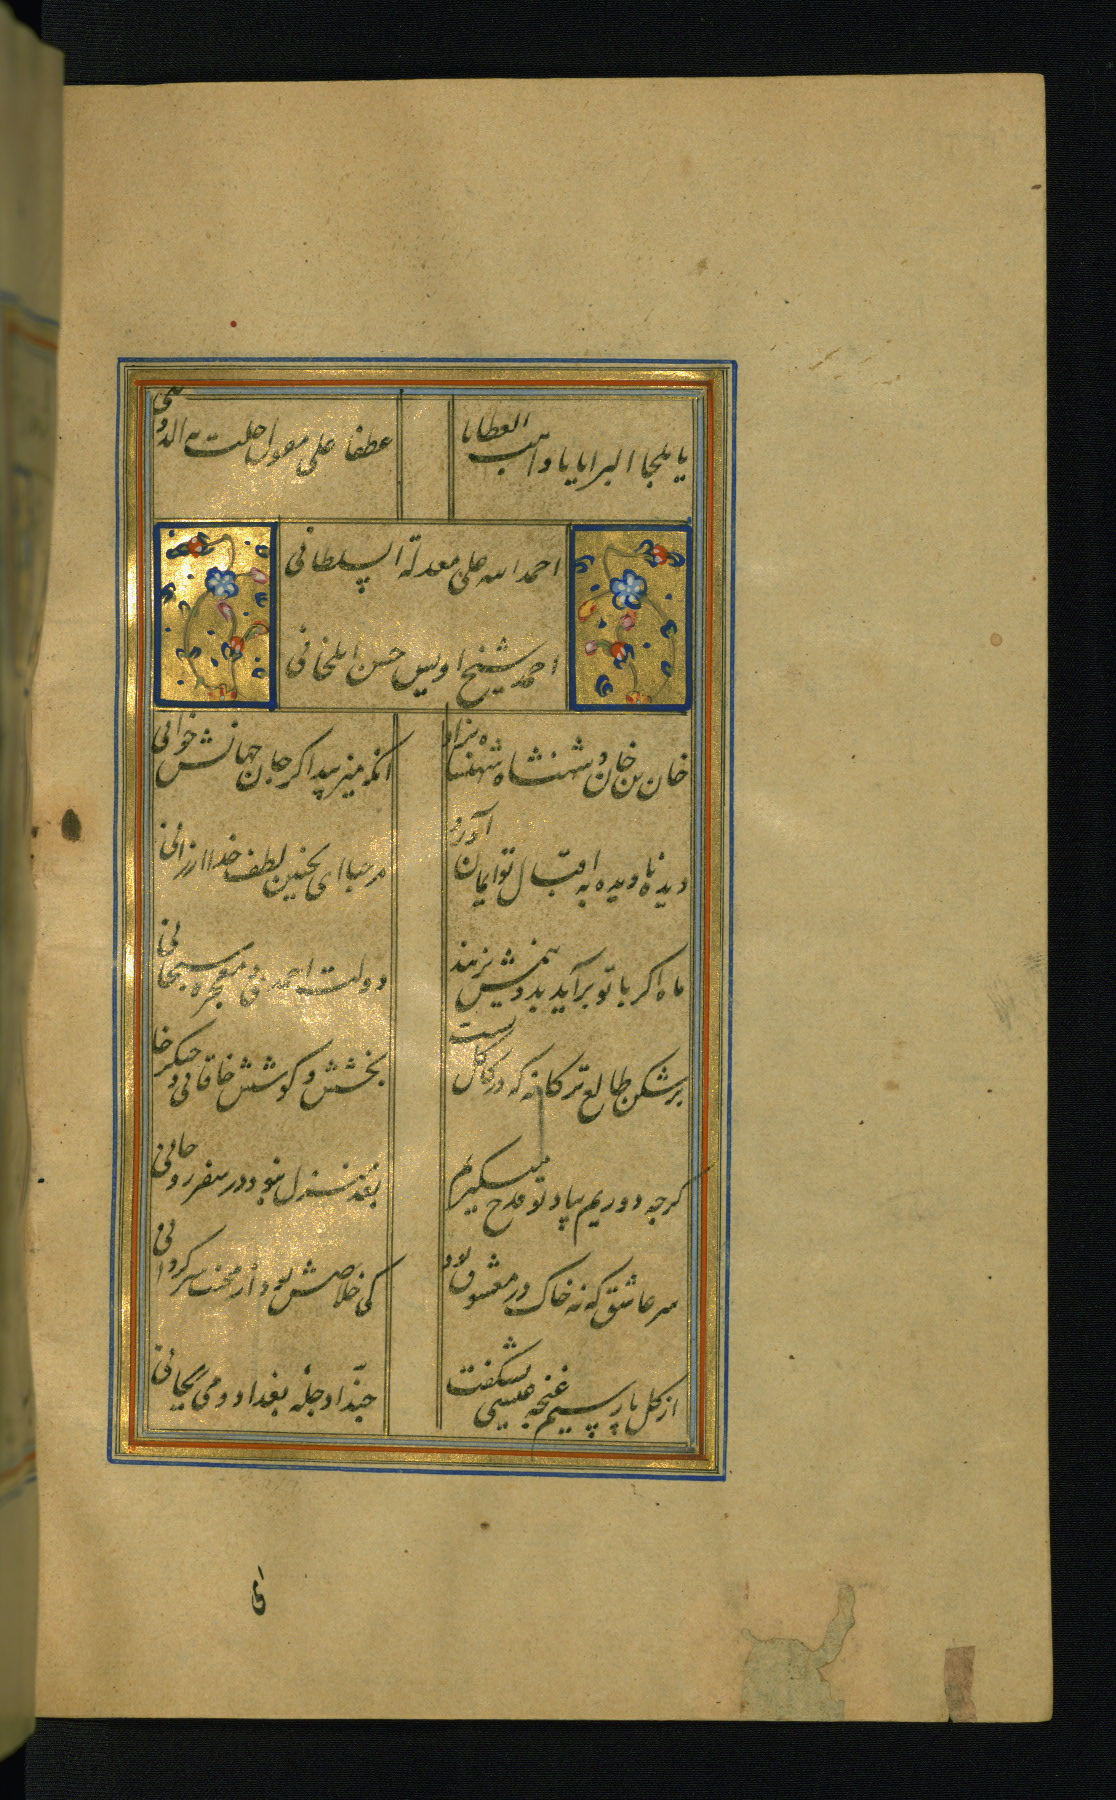 یا ملجا البرایا یا واهب العطایا
عطفا علی مقل حلت به الدواهی
احمد الله علی معدلة السلطانی
احمد شیخ اویس حسن ایلخانی
خان بن خان و شهنشاه شهنشاه نژاد
انکه میزیبد اکر جان جهانش خوانی
دیده نادیده به اقبال تو ایمان آورد
مرحبا ای بچنین لطف خدا ارزانی
ماه اکر با تو برآید بدونیمش بزنند
دولت احمدی و معجزه سبحانی
برشکن طالع ترکانه که در کاکل تست
بخشش و کوشش خاقانی و چنکز خانی
کرچه دوریم بیاد تو قدح میکیرم
بعد منزل نبود در سفر روحانی
سر عاشق که نه خاک در معشوق بود
کی خلاصش بود از محنت سرکردانی
از کل پارسیم غنچه عیسی بشکفت
حبذا دجله بغداد و می ریحانی